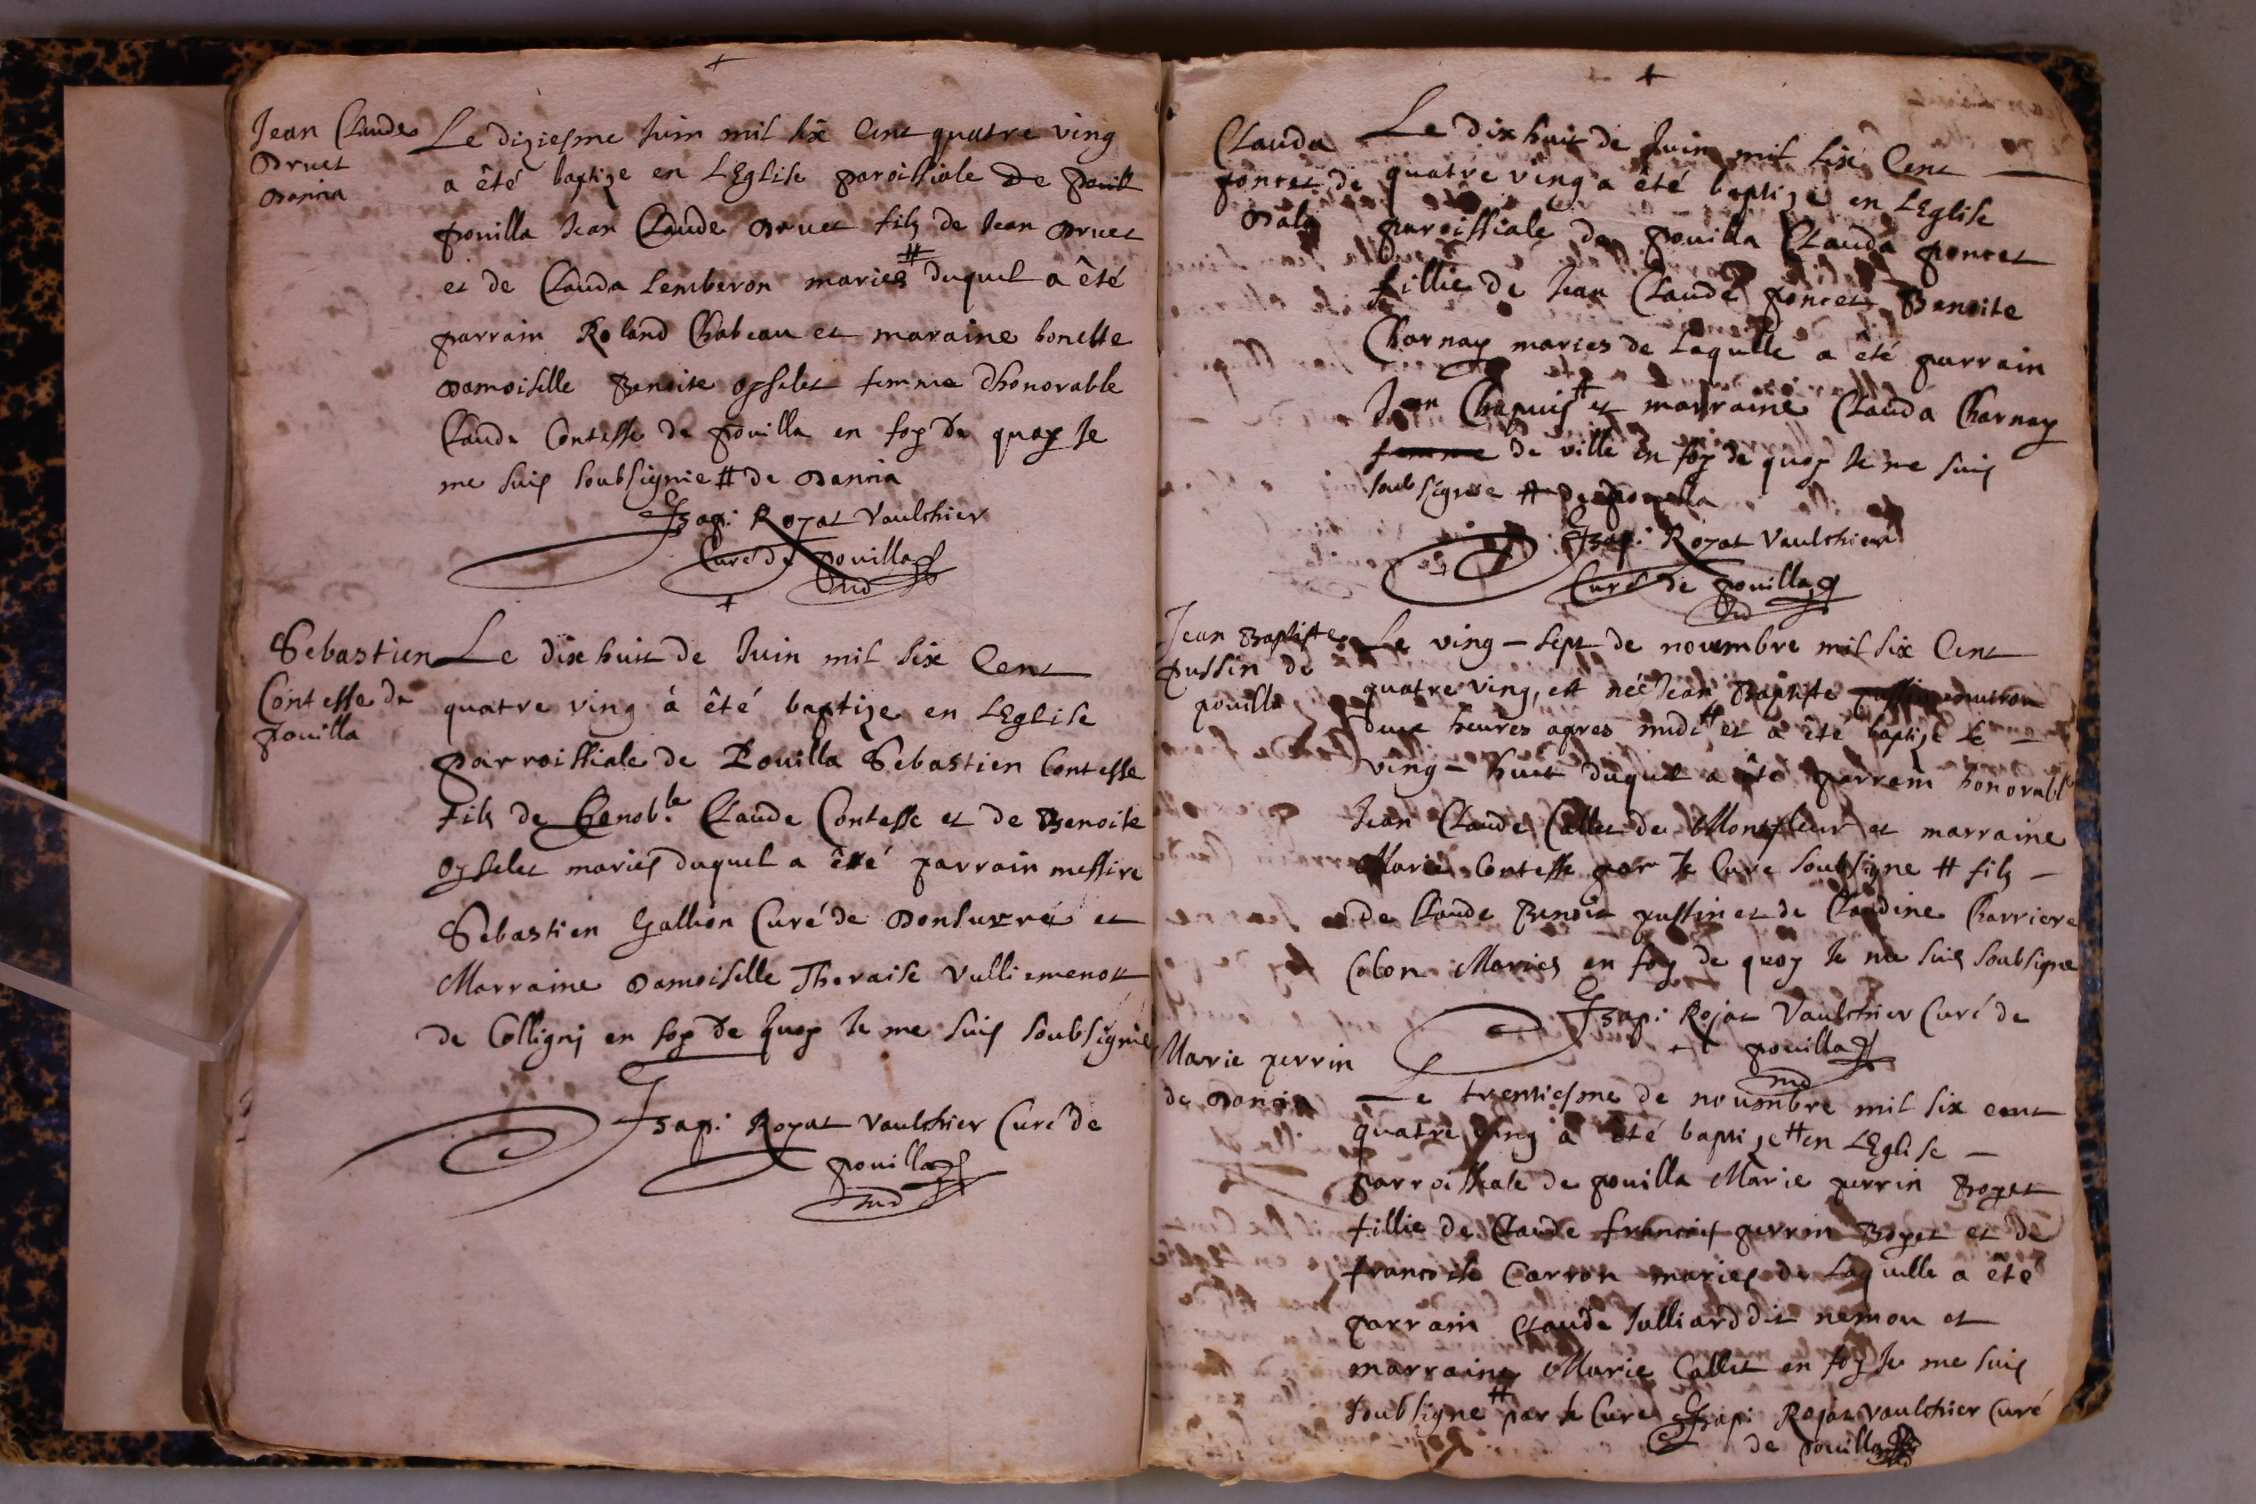 Jean Claude
Druet
Dancia
Le diziesme Juin mil six Cent quatre ving
a êté baptize en LEglise paroissiale de pouill
pouilla Jean Claude Druet filz de Jean Druet
et de Clauda Lemberon maries # duquel a êté
parrain Roland Chabeau et maraine honeste
Damoiselle Benoite Ossselet femme dhonorable
Claude Contesse de pouilla en foy de quoy Je
me suis soubsignie # de Dancia
Royat Vaulchier
Curé de pouilla
Sebastien
Contesse de
pouilla
Le dixhuit de Juin mil six Cent
quatre ving à êté baptize en LEglise
parroissiale de Pouilla Sebastien Contesse
fils de Claude Contesse et de Benoite
Osselet mariés duquel a êté parrain messire
Sebastien Gallion Curé de Donsurre et
Marraine Damoiselle Theraise Vulliemenot
de Colligny en foy de quoy Je me suis soubsignie
Royat Vaulchier Curé de
pouilla
Clauda
poncet de
Dala
Le dixhuit de Juin mil six Cent
quatre ving a êté baptizé en LEglise
paroissiale de pouilla Clauda poncet
fillie de Jean Claude poncet Benoite
Charnay maries de laquelle a êté parrain
Jean Chapuis # et marraine Clauda Charnay
femme de ville en foy de quoy Je me suis
soubsignie # de pouilla
Royat Vaulchier
Curé de pouilla
Jean Baptiste
pussin de
pouilla
Le ving-sept de novembre mil six Cent
quatre ving, est née Jean Baptiste pussin environ
deux heures apres midi # et a êté baptizé le
ving-huit duquel a êté parrain honorable
Jean Claude Callet de Montfleur et marraine
Marie Contesse par Je Curé soubsigne # filz
de Claude Benoit pussin et de Claudine Charriere
Colon Mariés en foy de quoy Je me suis soubsigne
Rojat Vaulchier Curé de
pouilla
Marie perrin
de Dancia
Le trentiesme de novembre mil six cent
quatre ving a êté baptize # en LEglise
parroissiale de pouilla Marie perrin Boyet
fillie de Claude francois perrin Boyet et de
francoise Carron mariés de laquelle a êté
parrain Claude Julliard dit nemou et
marraine Marie Callet en foy Je me suis
soubsigne # par le Cure Rojat vaulchier Curé
de pouilla